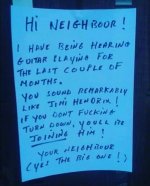 Hi NEIGHBOUR!
I HAVE BEING HEARING
GUITAR PLAYING FOR
THE LAST COUPLE OF
MONTHS.
YOU SOUND REMARKABLY
LIKE JIMI HENDRIX!
IF YOU DONT FUCKING
TURN DOWN, YOU'LL BE
JOINING HIM!
YOUR NEIGHBOUR
(YES THE BIG ONE!)